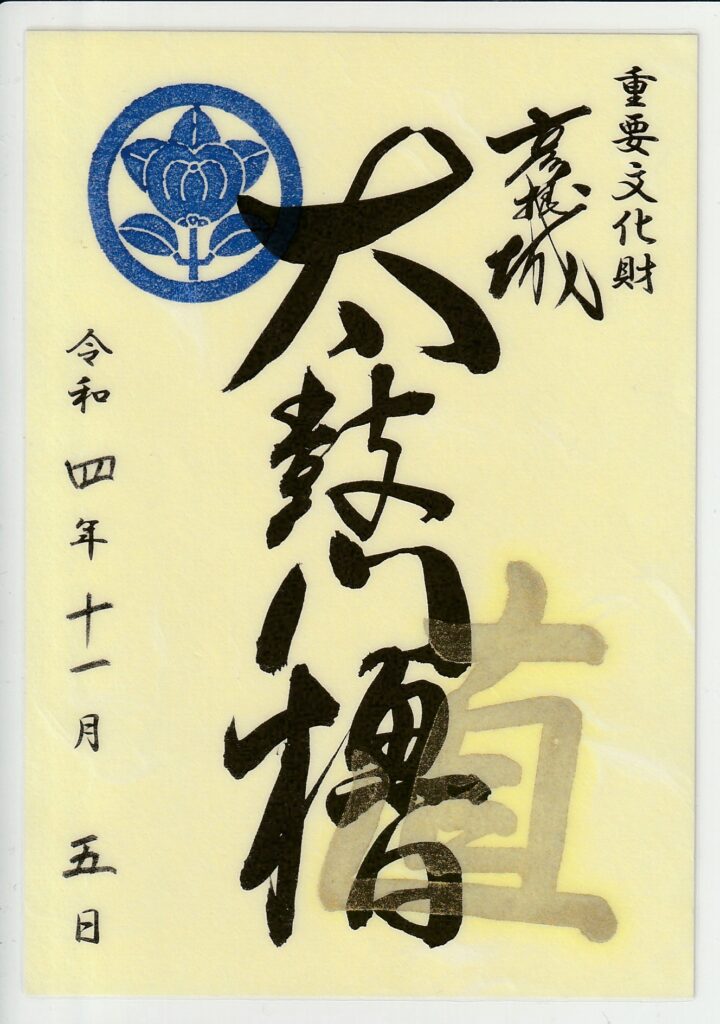 重要文化財
彦根城
太鼓門櫓
直
令和四年十一月 五日